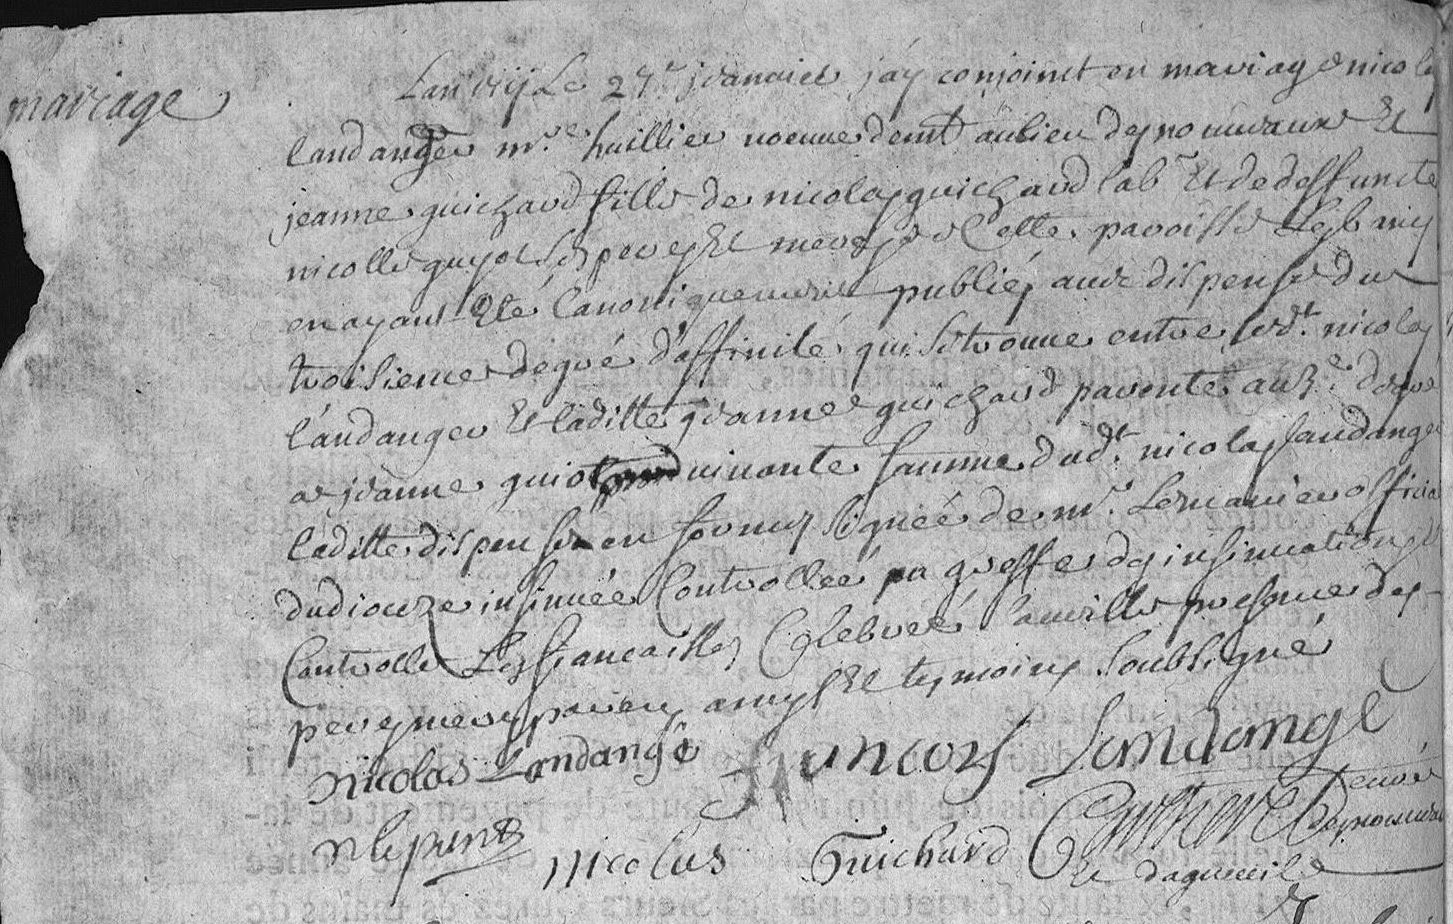 mariage
Lan le 27.r jeanvier jáy conjoinct en mariage nicolas
landanger m.re huillier demt au lieu des nouveaux Et
jeanne guichard fille de nicolas guichard labr Et de deffuncte
nicolle guyot Ses peres Et meres de Cette paroisse Les b
en ayant Eté Canoniquement publiés avec dispense du
troisieme degré d'affinité qui Se trouve entre ledt. nicolas
landanger Et laditte jeanne guichard parente au 3.e degré
de jeanne guiot vivante femme dudt. nicolas landanger
laditte dispense en forme Signée de mr. Lemanier official
du dioceze insinuée Controllée au greffe des insinuations Et
Controlle Les fiancailles Celebreé la veille presence des
peres meres parens amys Et tesmoins Soubsigné
Nicolas Landangé francois Landange
nicolas Guichard
Curé
des nouveaux